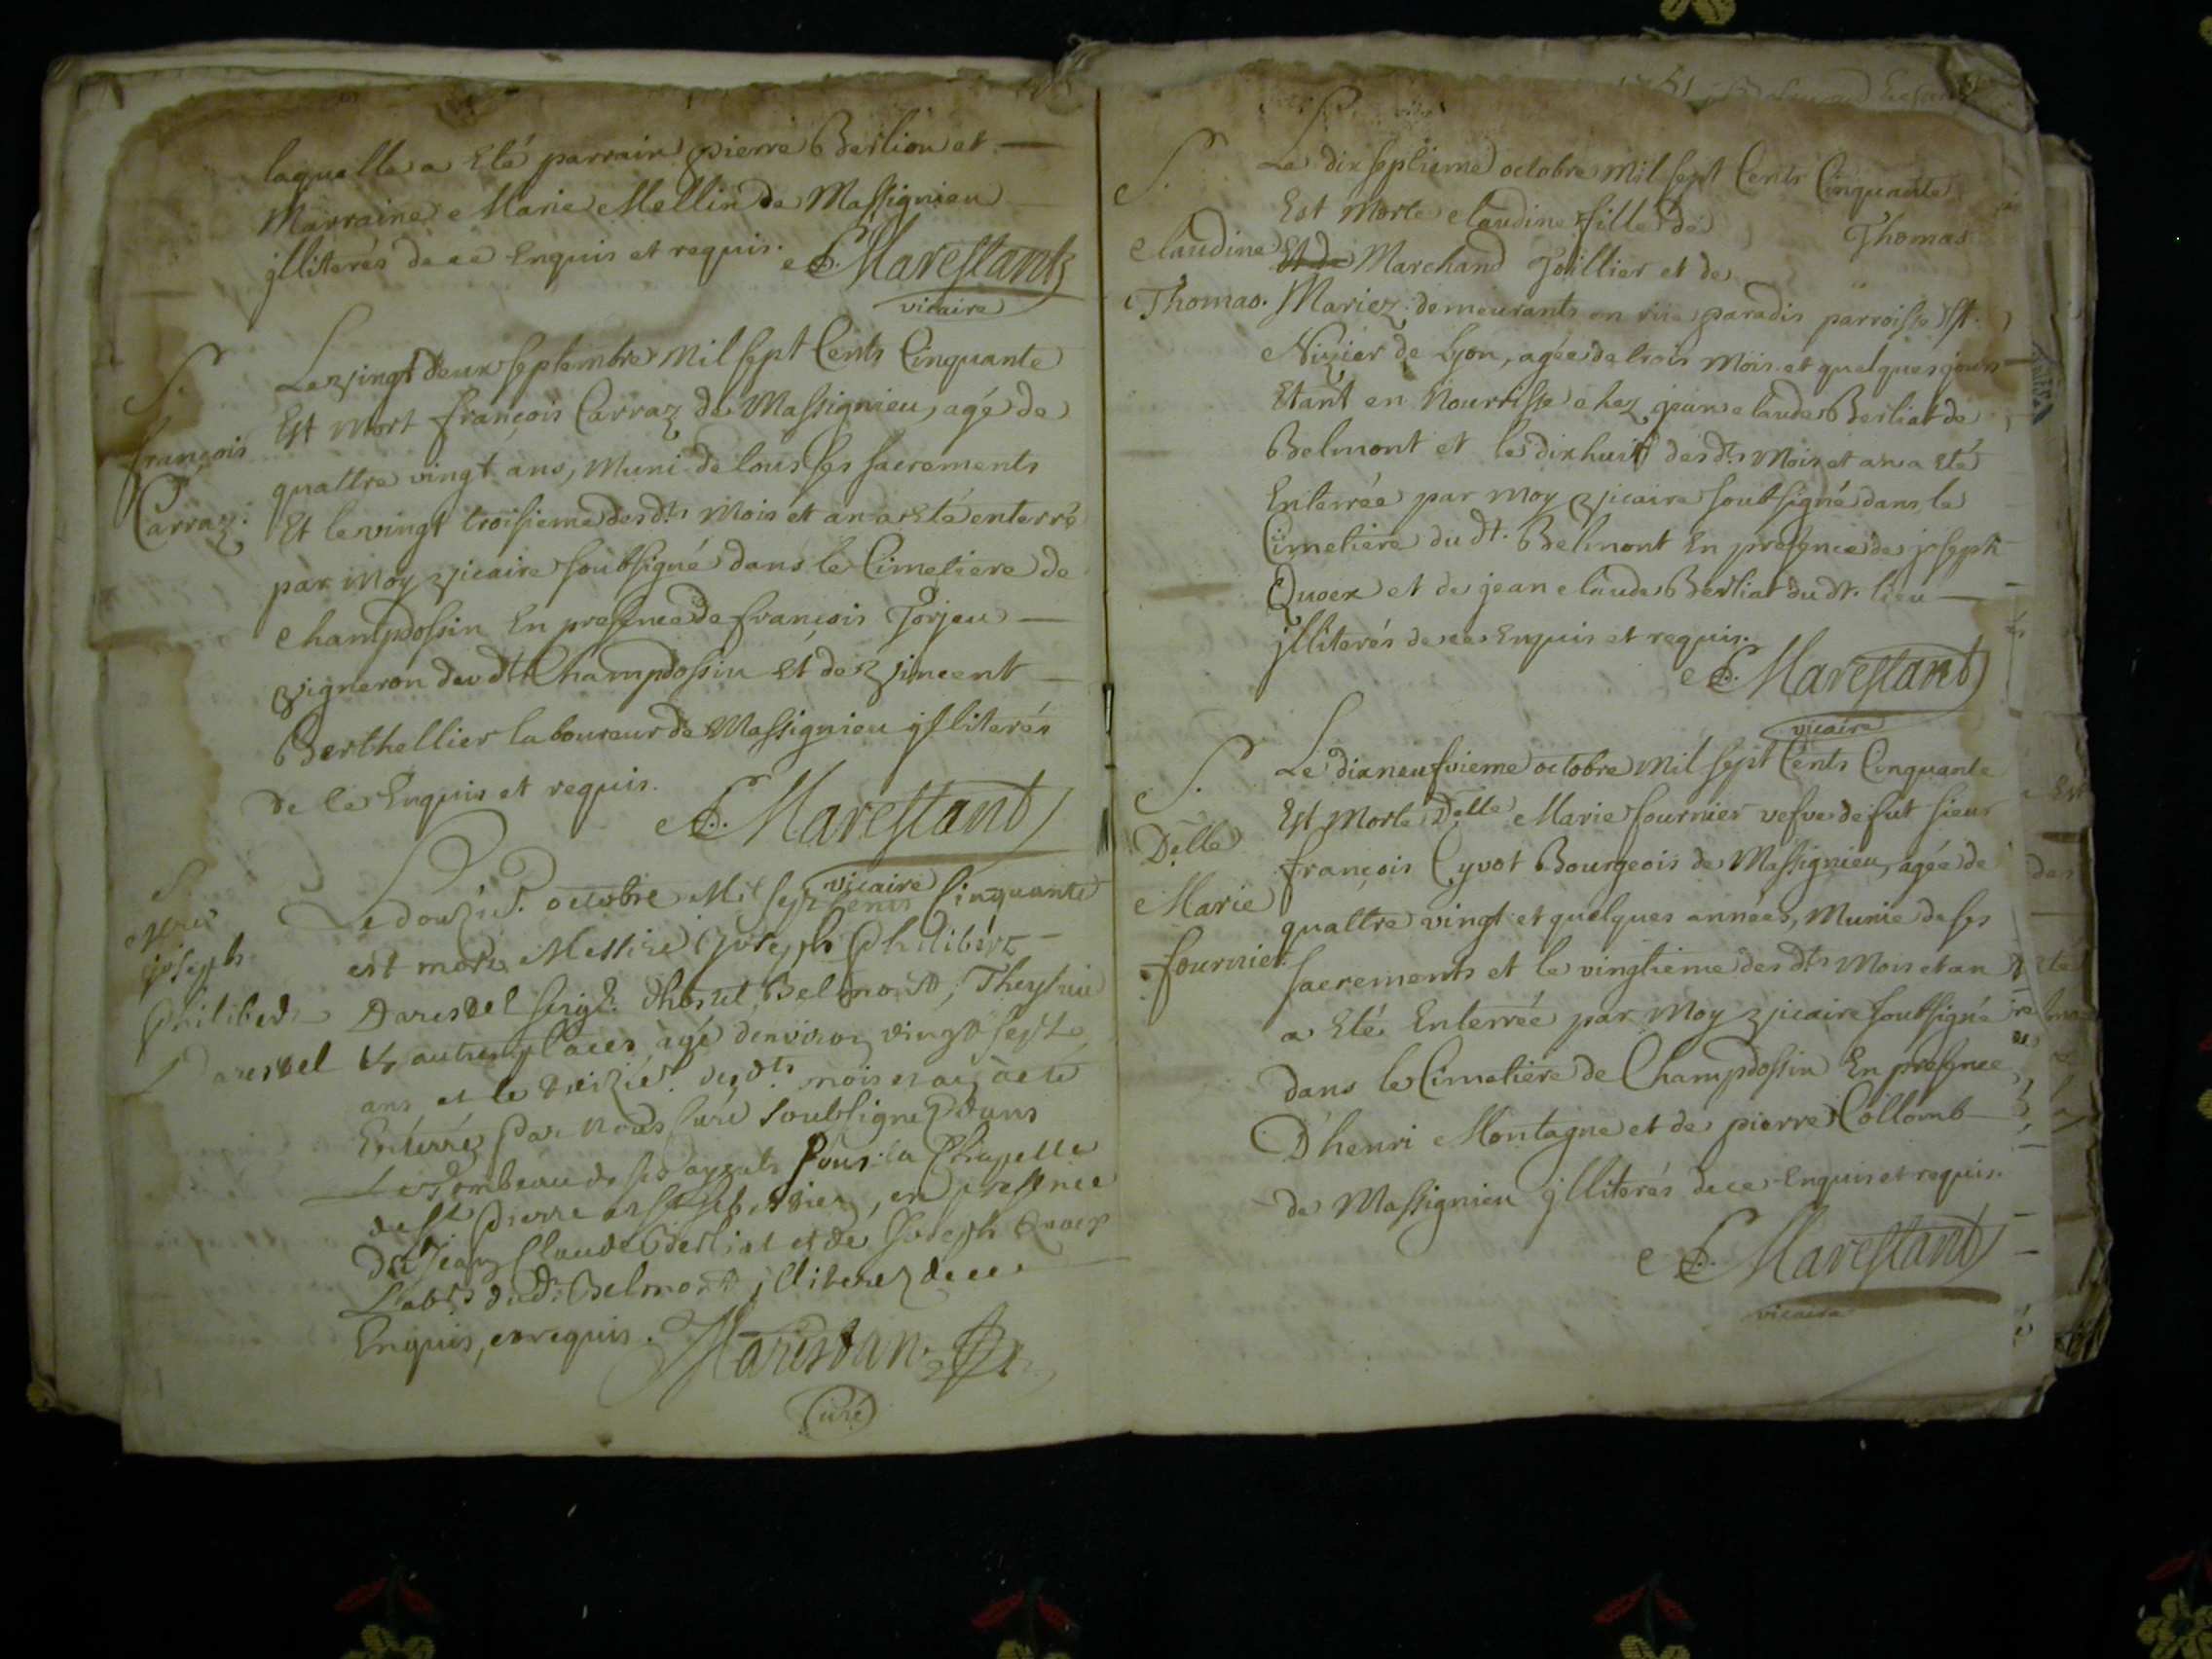 laquelle a Eté parrain pierre Berlion et
Marraine Marie Mellin de Massignieu
jlliterés de ce Enquis et requis. Marestant
vicaire
S.
françois
Carraz.
Le vingt deux septembre Mil sept Cents Cinquante
Est mort françois Carraz de Massignieu, agé de
quattre vingt ans, Muni de tous ses sacrements
Et le vingt troisieme desdts Mois et an a Eté enterré
par Moy vicaire soubsigné dans le Cimetiere de
Champdossin En presence de françois Gorjeu
vigneron dudt Champdossin Et de vincent
Berthellier laboureur de Massignieu jlliterés
de ce Enquis et requis.
Marestant
vicaire
S.
joseph
philibert
Darestel
Le douzie. octobre Mil sept Cents Cinquante
est mort Messire Joseph Philibert
Darestel seigr. d'hostel, Belmont, Theysieu
& autres places, agé denviron vingt sept
ans et le treizie. desdts mois et an a eté
Enterré Par Nous Curé soubsigné dans
Le Tombeau de ses ayeuls sous la Chapelle
de St Pierre et St sebastien, en presence
de Jean Claude Berliat et de Joseph Quoex
Labrs dudt. Belmont, jlliterez de ce
Enquis, et requis. Marestan
Curé
S.
Claudine
Thomas.
Le dix septieme octobre Mil sept Cents Cinquante
Est Morte Claudine fille de Thomas
Et de Marchand Toillier et de
Mariez demeurants en riie paradis parroisse St.
Nizier de Lyon, agée de trois Mois et quelques jours
Etant en Nourrisse chez jean claude Berliat de
Belmont et le dixhuit desdts Mois et an a Eté
Enterrée par Moy vicaire soubsigné dans le
Cimetiere du dt. Belmont En presence de joseph
Quoex et de jean claude Berliat du dt. lieu
jlliterés de ce Enquis et requis.
Marestant
vicaire
S.
Delle
Marie
fournier.
Le dixneufvieme octobre Mil sept Cents Cinquante
Est Morte Delle Marie fournier vefve de fut sieur
françois Cyvot Bourgeois de Massignieu, agée de
quattre vingt et quelques années, Munie de ses
sacrements et le vingtieme desdts Mois et an
a Eté Enterrée par Moy vicaire soubsigné
dans le Cimetiere de Champdossin En presence
D'henri Montagne et de pierre Collomb
de Massignieu jlliterés de ce Enquis et requis.
Marestant
vicaire